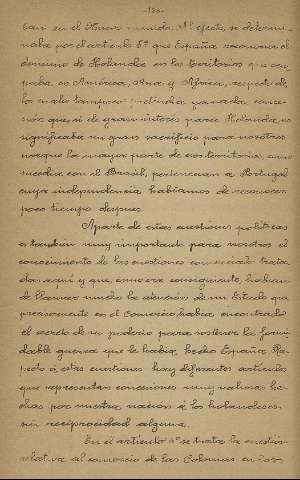 -136-
ban en el Nuevo mundo. Al efecto, se determi-
naba por el artículo 5º que España reconocía el
dominio de Holanda en los territorios que ocu-
paba en América, Asia y África, respecto de
lo cual tampoco pretendía ganada conce-
sión que, si de gran interés para Holanda, no
significaba un gran sacrificio para nosotros
porque la mayor parte de esos territorios, como
sucedía con el Brasil, pertenecían a Portugal
cuya independencia habíamos de reconocer
poco tiempo despues.
Aparte de estas cuestiones políticas
es tambien muy importante para nosotros el
conocimiento de las cuestiones comerciales trata-
das aquí y que, como era consiguiente, habían
de llamar mucho la atención de un Estado que
precisamente en el Comercio había encontrado
el secreto de su poderío para sostener la formi-
dable guerra que le había hecho España. Res-
pecto á estas cuestiones hay diferentes artículos
que representan concesiones muy valiosas he-
chas por nuestra nación á los holandeses
sin reciprocidad alguna.
En el artículo 5º se trata la cuestión
relativa al comercio de las Colonias en los